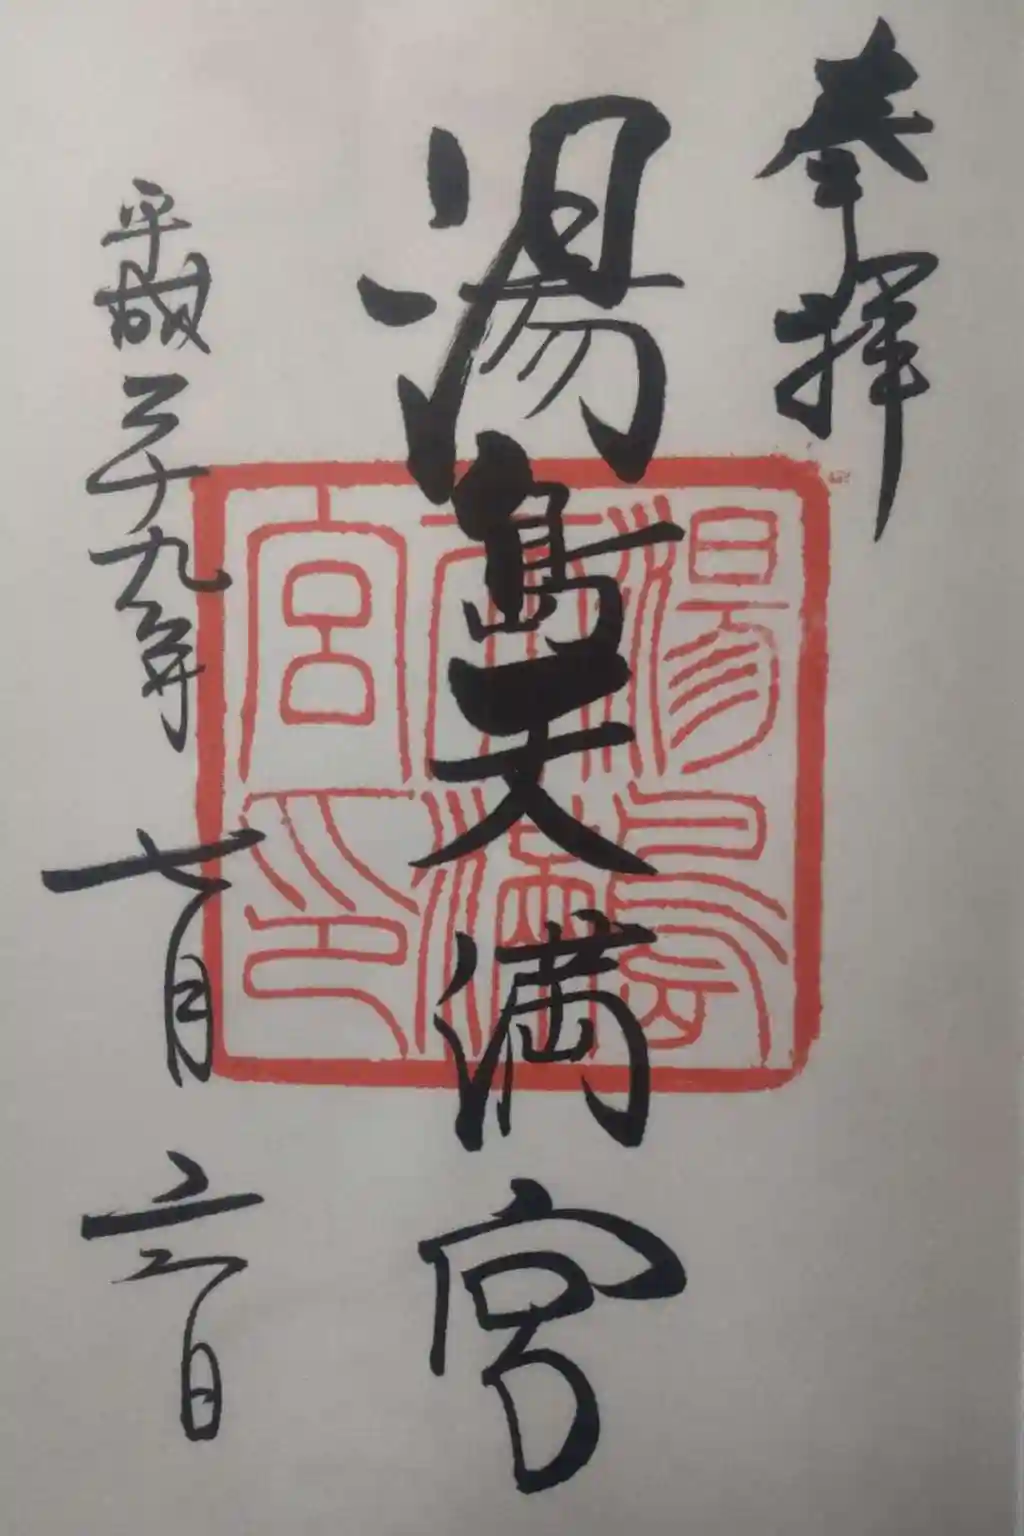 奉拝
湯島天満宮
平成二十九年 七月 六日
湯島
天満
宮印